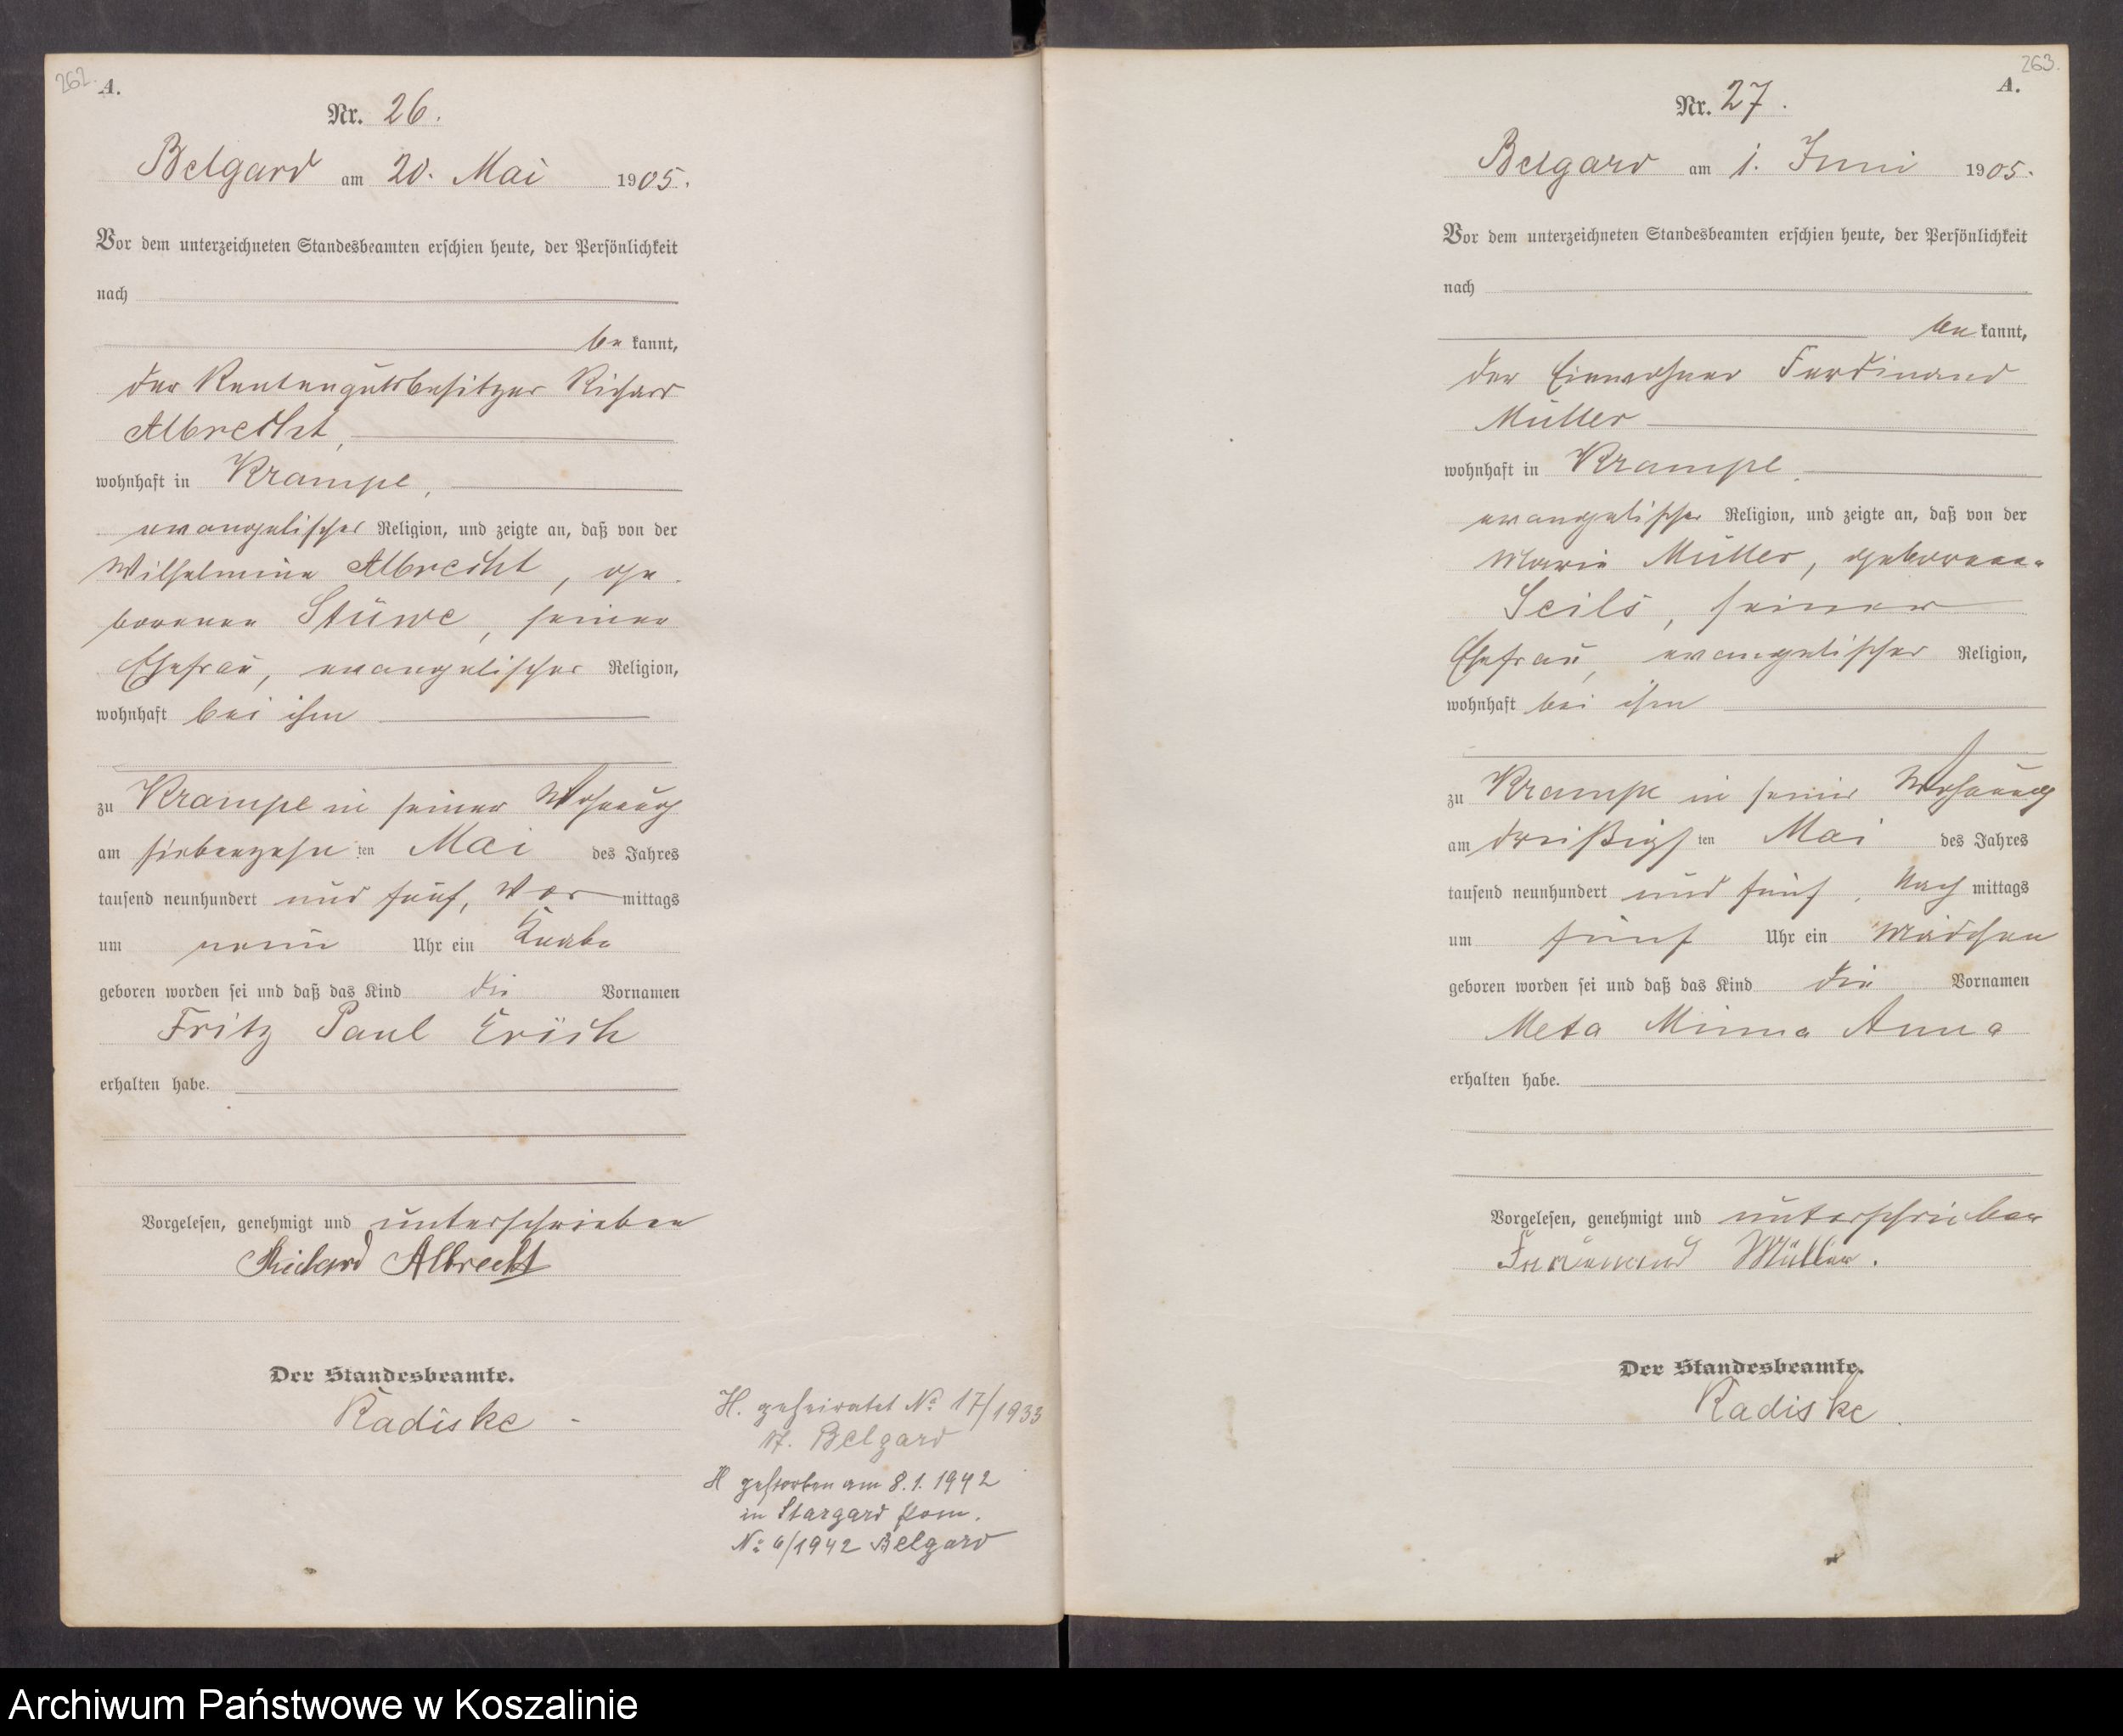 262.
A.
Nr. 26.
Belgard am 20. Mai 1905.
Vor dem unterzeichneten Standesbeamten erschien heute, der Persönlichkeit
nach
be kannt,
der Rentengutsbesitzer Richard
Albrecht,
wohnhaft in Krampe,
evangelischer Religion, und zeigte an, daß von der
Wilhelmine Albrecht, ge
borenen Stüwe, seiner
Ehefrau, evangelischer Religion,
wohnhaft bei ihm
zu Krampe in seiner Wohnung
am siebenzehn ten Mai des Jahres
tausend neunhundert und fünf, Vor mittags
um neun Uhr ein Knabe
geboren worden sei und daß das Kind die Vornamen
Fritz Paul Erich
erhalten habe.
Vorgelesen, genehmigt und unterschrieben
Richard Albrecht
Der Standesbeamte.
Radiske
H. geheiratet No 17/1933
Belgard
H gestorben am 8.1.1942
in Stargard Pom.
No 6/1942 Belgard
263.
A.
Nr. 27.
Belgard am 1. Juni 1905.
Vor dem unterzeichneten Standesbeamten erschien heute, der Persönlichkeit
nach
be kannt,
der Einwohner Ferdinand
Müller
wohnhaft in Krampe,
evangelischer Religion, und zeigte an, daß von der
Marie Müller, geborenen
Seils, seiner
Ehefrau, evangelischer Religion,
wohnhaft bei ihm
zu Krampe in seiner Wohnung
am dreißigs ten Mai des Jahres
tausend neunhundert und fünf, Nach mittags
um fünf Uhr ein Mädchen
geboren worden sei und daß das Kind die Vornamen
Meta Minna Anna
erhalten habe.
Vorgelesen, genehmigt und unterschrieben
Ferdinand Müller.
Der Standesbeamte.
Radiske.
Archiwum Państwowe w Koszalinie